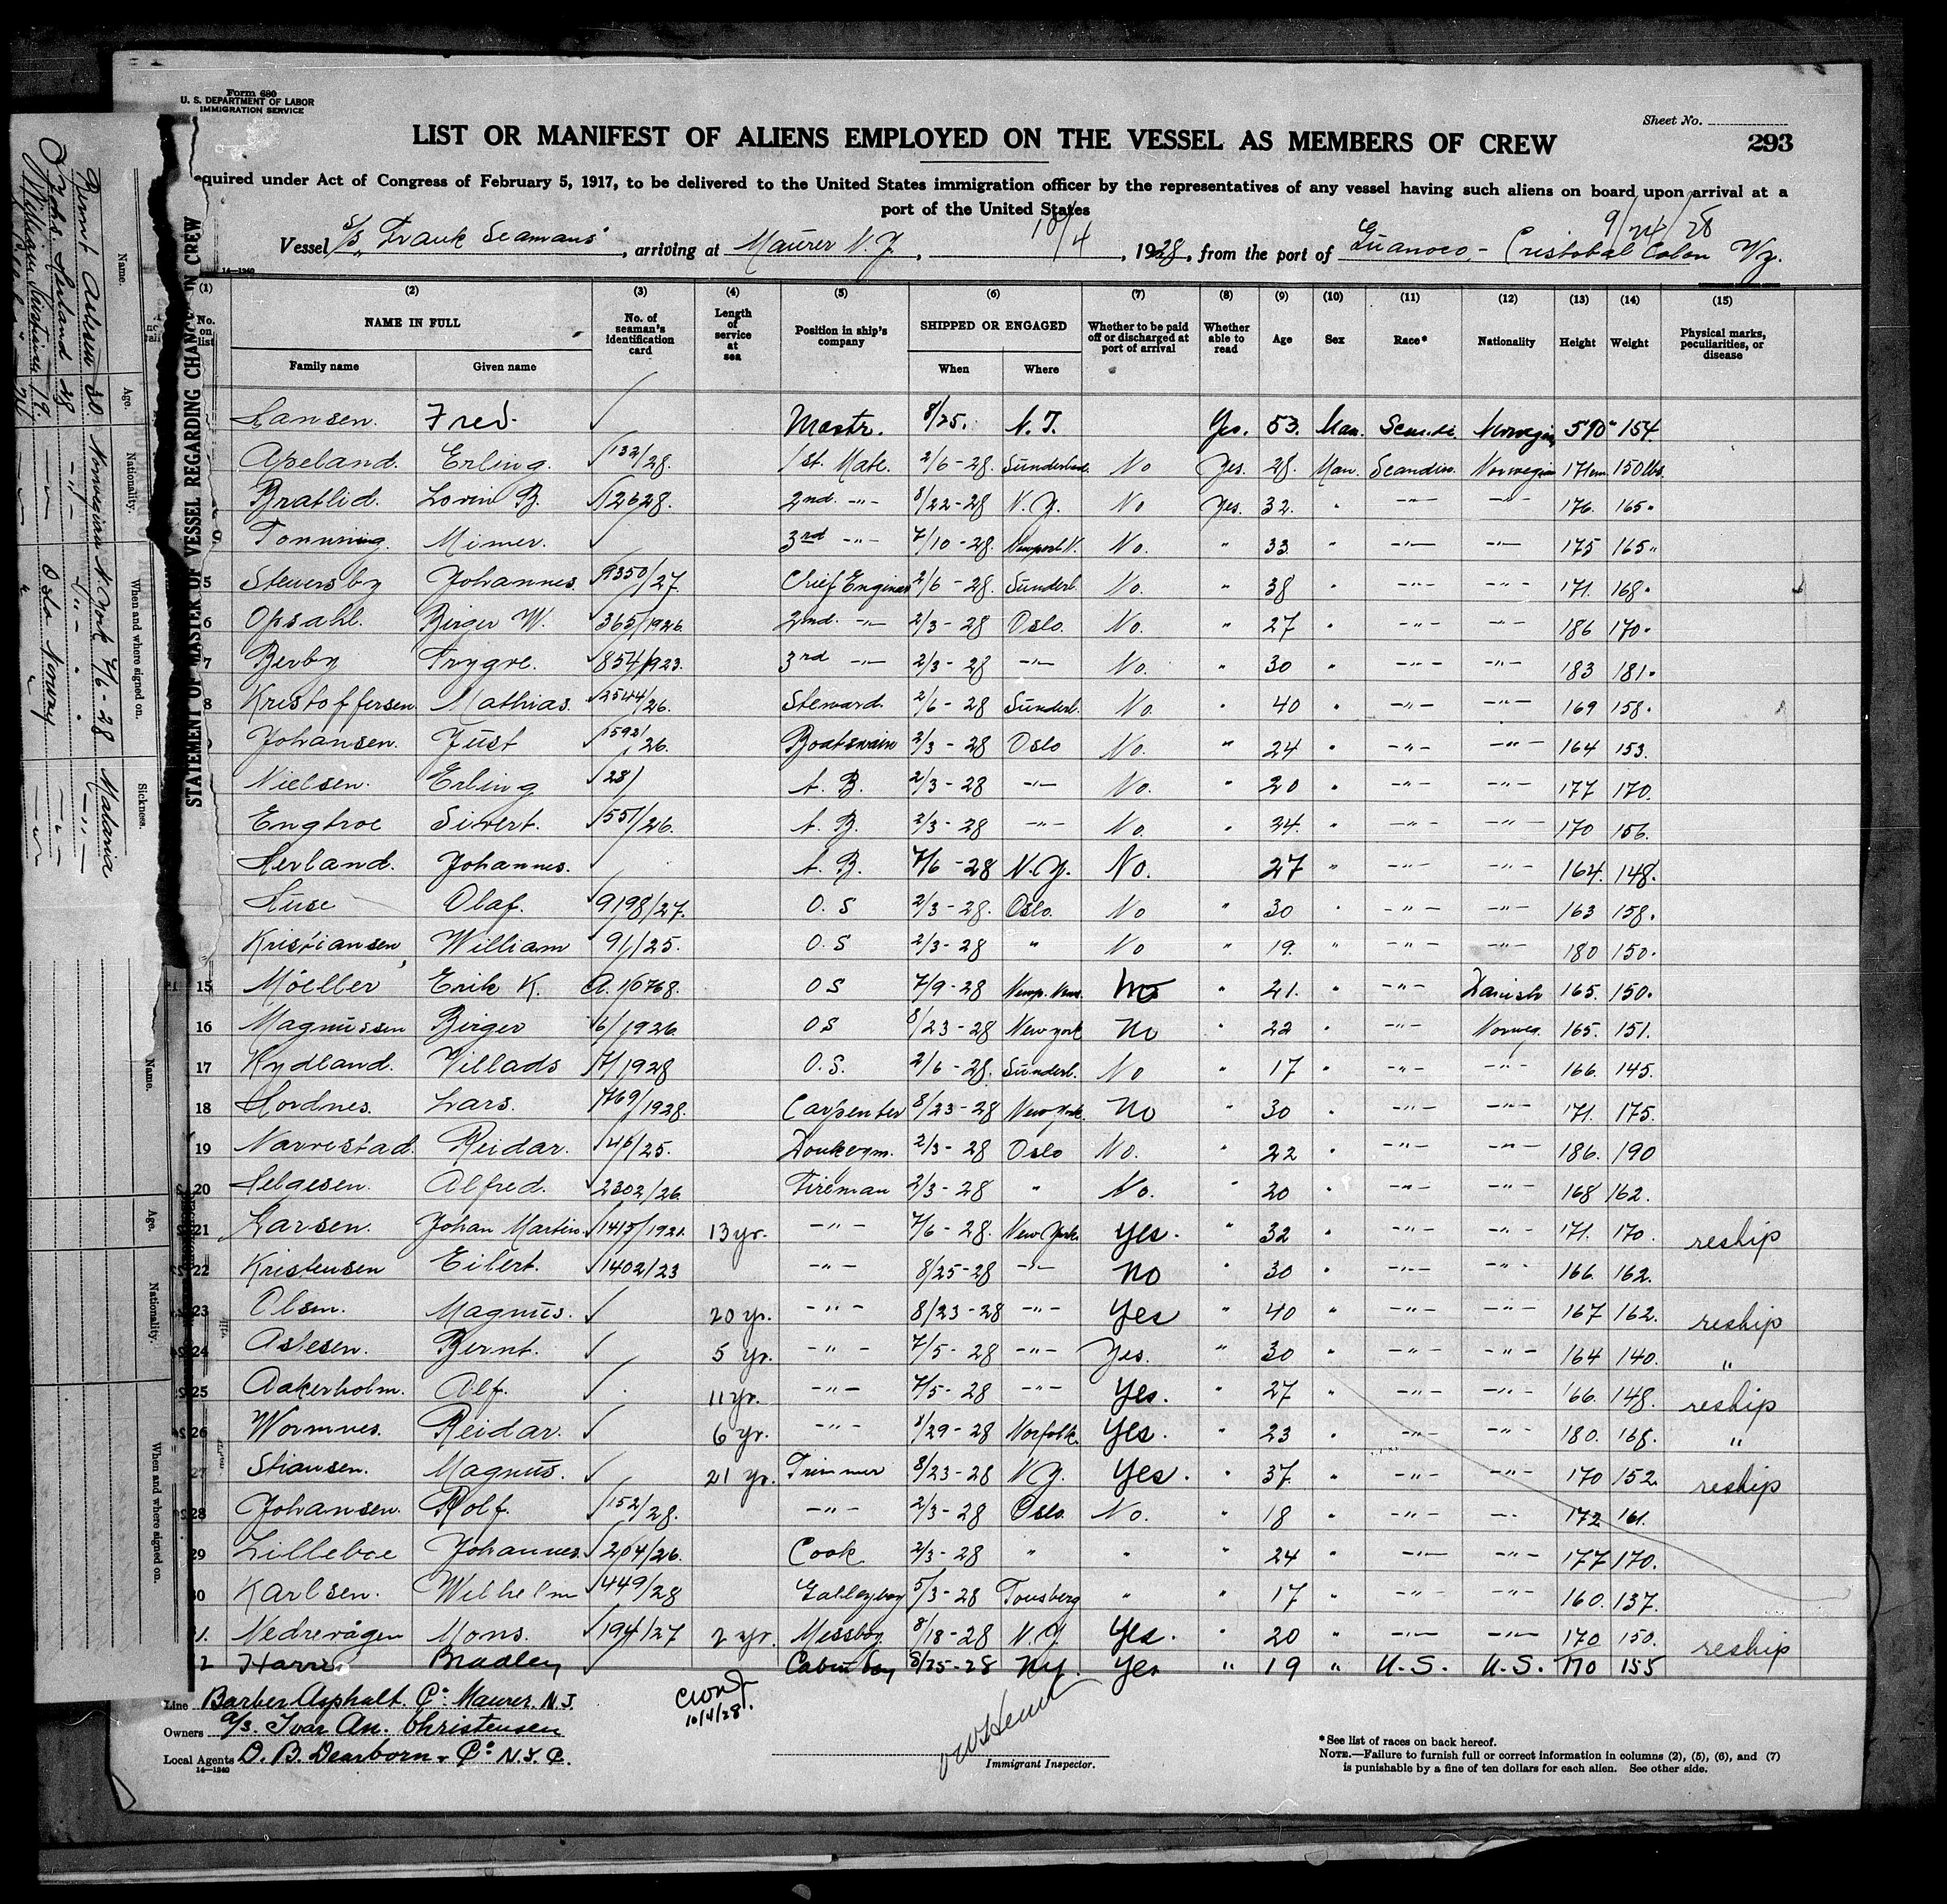 Form 680
U. S. DEPARTMENT OF LABOR
IMMIGRATION SERVICE
Sheet No.
293
LIST OR MANIFEST OF ALIENS EMPLOYED ON THE VESSEL AS MEMBERS OF CREW
equired under Act of Congress of February 5, 1917, to be delivered to the United States immigration officer by the representatives of any vessel having such aliens on board upon arrival at a
port of the United States
Vessel S/S "Frank Seamans", arriving at Maurer N.J., 10/4, 1928, from the port of Guanoco - Cristobal Colon Vz. 9/24/28
14—1240
(1) (2) (3) (4) (5) (6) (7) (8) (9) (10) (11) (12) (13) (14) (15)
No. on list NAME IN FULL Family name Given name No. of seaman's identification card Length of service at sea Position in ship's company SHIPPED OR ENGAGED When Where Whether to be paid off or discharged at port of arrival Whether able to read Age Sex Race* Nationality Height Weight Physical marks, peculiarities, or disease
Hansen. Fred. Mastr. 8/25. N.J. Yes. 53. Man. Scandi. Norwegian 5'10" 154
Apeland. Erling. 132/28. 1st. Mate. 2/6-28. Sunderland. No Yes. 28. Man. Scandin. Norwegian 171cm. 150lbs.
Bratlid. Lorin B. 12628. 2nd. -"- 8/22-28 N.Y. No Yes. 32. " -"- -"- 176. 165"
Tonning. Mimer. 3rd -"- 7/10-28. Newport N. No. " 33 " -"- -"- 175 165"
5 Stenersby Johannes. 9350/27. Chief Engineer 2/6-28 Sunderl. No. " 38 " -"- -"- 171. 168"
6 Opsahl. Birger W. 365/1926. 2nd. -"- 2/3-28 Oslo. No. " 27 " -"- -"- 186 170"
7 Berby Trygve. 854/1923. 3rd -"- 2/3-28 -"- No. " 30 " -"- -"- 183 181"
8 Kristoffersen Mathias. 2544/26. Steward. 2/6-28 Sunderl. No. " 40 " -"- -"- 169 158"
Johansen. Just 1592/26. Boatswain 2/3-28 Oslo No. " 24 " -"- -"- 164 153.
Nielsen. Erling 28/ A.B. 2/3-28 -"- No. " 20 " -"- -"- 177 170.
Engtroe Sivert. 551/26. A.B. 2/3-28 -"- No. " 24. " -"- -"- 170 156.
Herland. Johannes. A.B. 7/6-28 N.Y. No. 27 " -"- -"- 164. 148.
Huse Olaf. 9198/27. O.S 2/3-28. Oslo. No " 30 " -"- -"- 163 158.
Kristiansen William 91/25. O.S 2/3-28 " No " 19. " -"- -"- 180 150.
15 Möeller Erik K. A.10768. OS 7/9-28 Newp. News No " 21. " -"- Danish 165. 150.
16 Magnussen Birger 6/1926. OS 8/23-28 New york No " 22 " -"- Norweg. 165. 151.
17 Rydland. Villads 7/1928 O.S. 2/6-28. Sunderl. No " 17 " -"- -"- 166. 145.
18 Hordnes. Lars. 769/1928. Carpenter 8/23-28 New York. No " 30 " -"- -"- 171. 175.
19 Narrestad. Reidar. 46/25. Donkeym. 2/3-28 Oslo No. " 22 " -"- -"- 186. 190
20 Helgesen. Alfred. 2302/26. Fireman 2/3-28 " No. " 20 " -"- -"- 168 162.
21 Larsen. Johan Martin. 1415/1921. 13yr. -"- 7/6-28. New York. Yes. " 32 " -"- -"- 171. 170. reship
22 Kristensen Eilert. 1402/23 -"- 8/25-28 -"- No " 30 " -"- -"- 166. 162.
23 Olsen. Magnus. 20 yr. -"- 8/23-28 -"- Yes " 40 " -"- -"- 167 162. reship
24 Aslesen. Bernt. 5 yr. -"- 7/5-28 -"- Yes. " 30 " -"- -"- 164 140. "
25 Aakerholm. Alf. 11yr. -"- 7/5-28 -"- Yes. " 27 " -"- -"- 166. 148. reship
26 Wormnes. Reidar. 6 yr. -"- 8/29-28 Norfolk. Yes. " 23 " -"- -"- 180. 168. "
27 Stiansen. Magnus. 21 yr. Trimmer 8/23-28 N.Y. Yes. " 37. " -"- -"- 170 152. reship
28 Johansen. Rolf. 152/28. -"- 2/3-28 Oslo. No. " 18 " -"- -"- 172 161.
29 Lilleboe Johannes. 204/26. Cook 2/3-28 " " " 24 " -"- -"- 177 170.
30 Karlsen. Wilhelm 449/28 Galleyboy 5/3-28 Tonsberg " " 17 " -"- -"- 160. 137.
1. Nedrevågen Mons. 194/27 2 yr. Messboy. 8/18-28 N.Y. Yes. " 20 " -"- -"- 170 150. reship
2 Harris Bradley Cabin boy 8/25-28 NY. Yes " 19 " U.S. U.S. 170 155
Line Barber Asphalt. Co. Maurer. N.J
Owners A/S. Ivar An. Christensen
Local Agents D. B. Dearborn & Co N.Y.C.
14—1240
10/4/28.
Immigrant Inspector.
*See list of races on back hereof.
NOTE.—Failure to furnish full or correct information in columns (2), (5), (6), and (7)
is punishable by a fine of ten dollars for each alien. See other side.
STATEMENT OF MASTER OF VESSEL REGARDING CHANGE IN CREW
Name. Age. Nationality. When and where signed on. Sickness.
Bernt Aslesen 30 Norwegian N. York 7/6-28 Malaria
Johs. Herland 28 -"- -"-
William Kristiansen 19. Oslo Norway
Name. Age. Nationality. When and where signed on.